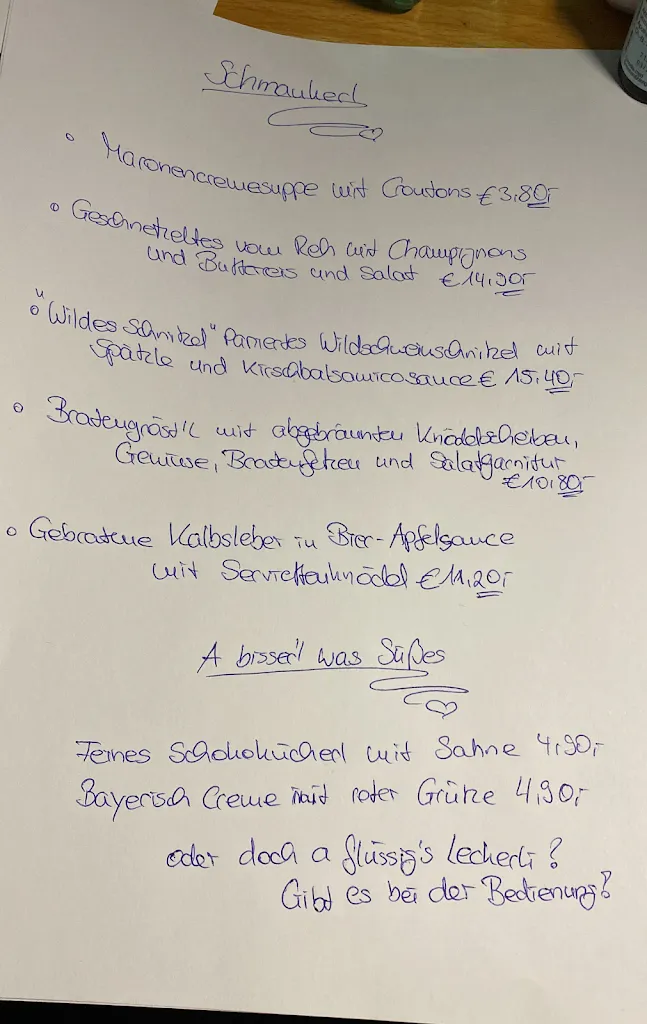 Schmankerl
Maronencremesuppe mit Croutons € 3,80,-
Geschnetzeltes vom Reh mit Champignons
und Butterreis und Salat € 14,90,-
"Wildes Schnitzel" Paniertes Wildschweinschnitzel mit
Spätzle und Kirschbalsamicosauce € 15,40,-
Bratengröst'l mit abgebräunten Knödelscheiben,
Gemüse, Bratenfetzen und Salatgarnitur
€ 10,80,-
Gebratene Kalbsleber in Bier-Apfelsauce
mit Serviettenknödel € 11,20,-
A bisserl was Süßes
Feines Schokokücherl mit Sahne 4,90,-
Bayerisch Creme mit roter Grütze 4,90,-
oder doch a flüssig's Leckerli?
Gibt es bei der Bedienung!